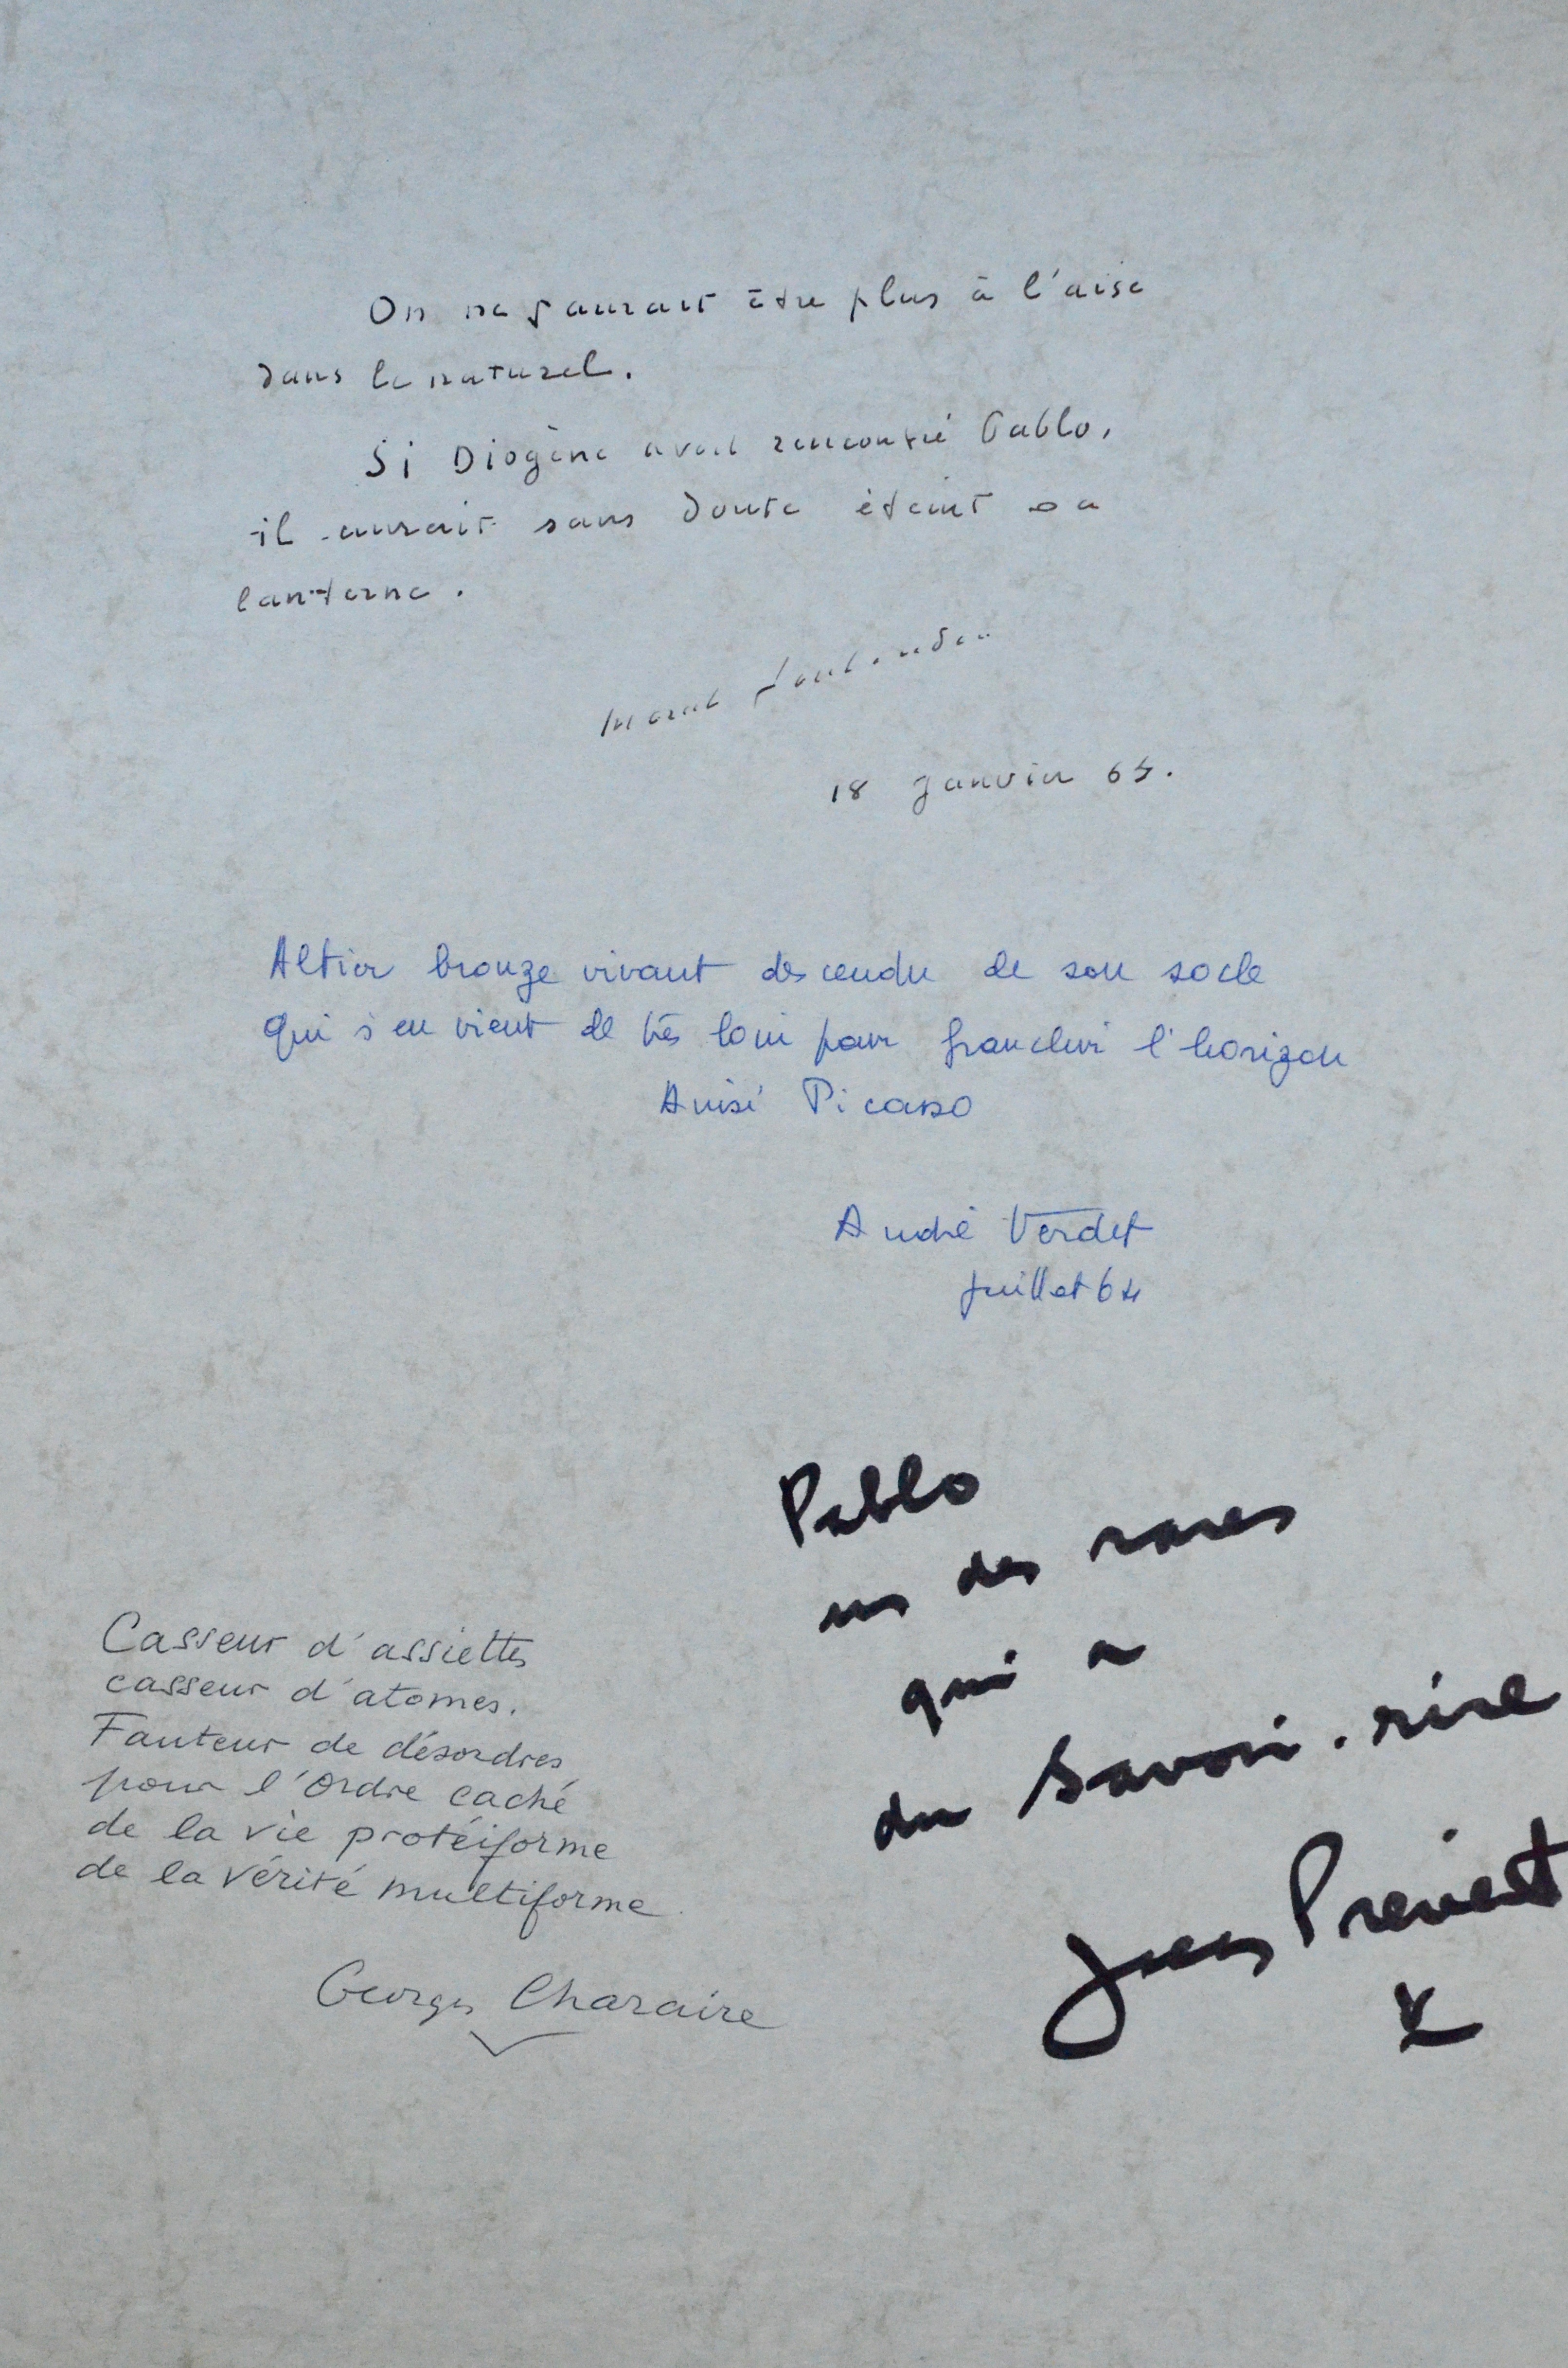 On ne saurait être plus à l'aise
dans le naturel.
Si Diogène avait rencontré Pablo,
il aurait sans doute éteint sa
lanterne.
18 janvier 65.
Altier bronze vivant descendu de son socle
Qui s'en vient de très loin pour franchir l'horizon
Picasso
André Verdet
juillet 64
Pablo
un des rares
qui a
du Savoir-rire
Jacques Prévert
Casseur d'assiettes
casseur d'atomes.
Fauteur de désordres
pour l'Ordre caché
de la vie protéiforme
de la vérité multiforme.
Georges Charaire